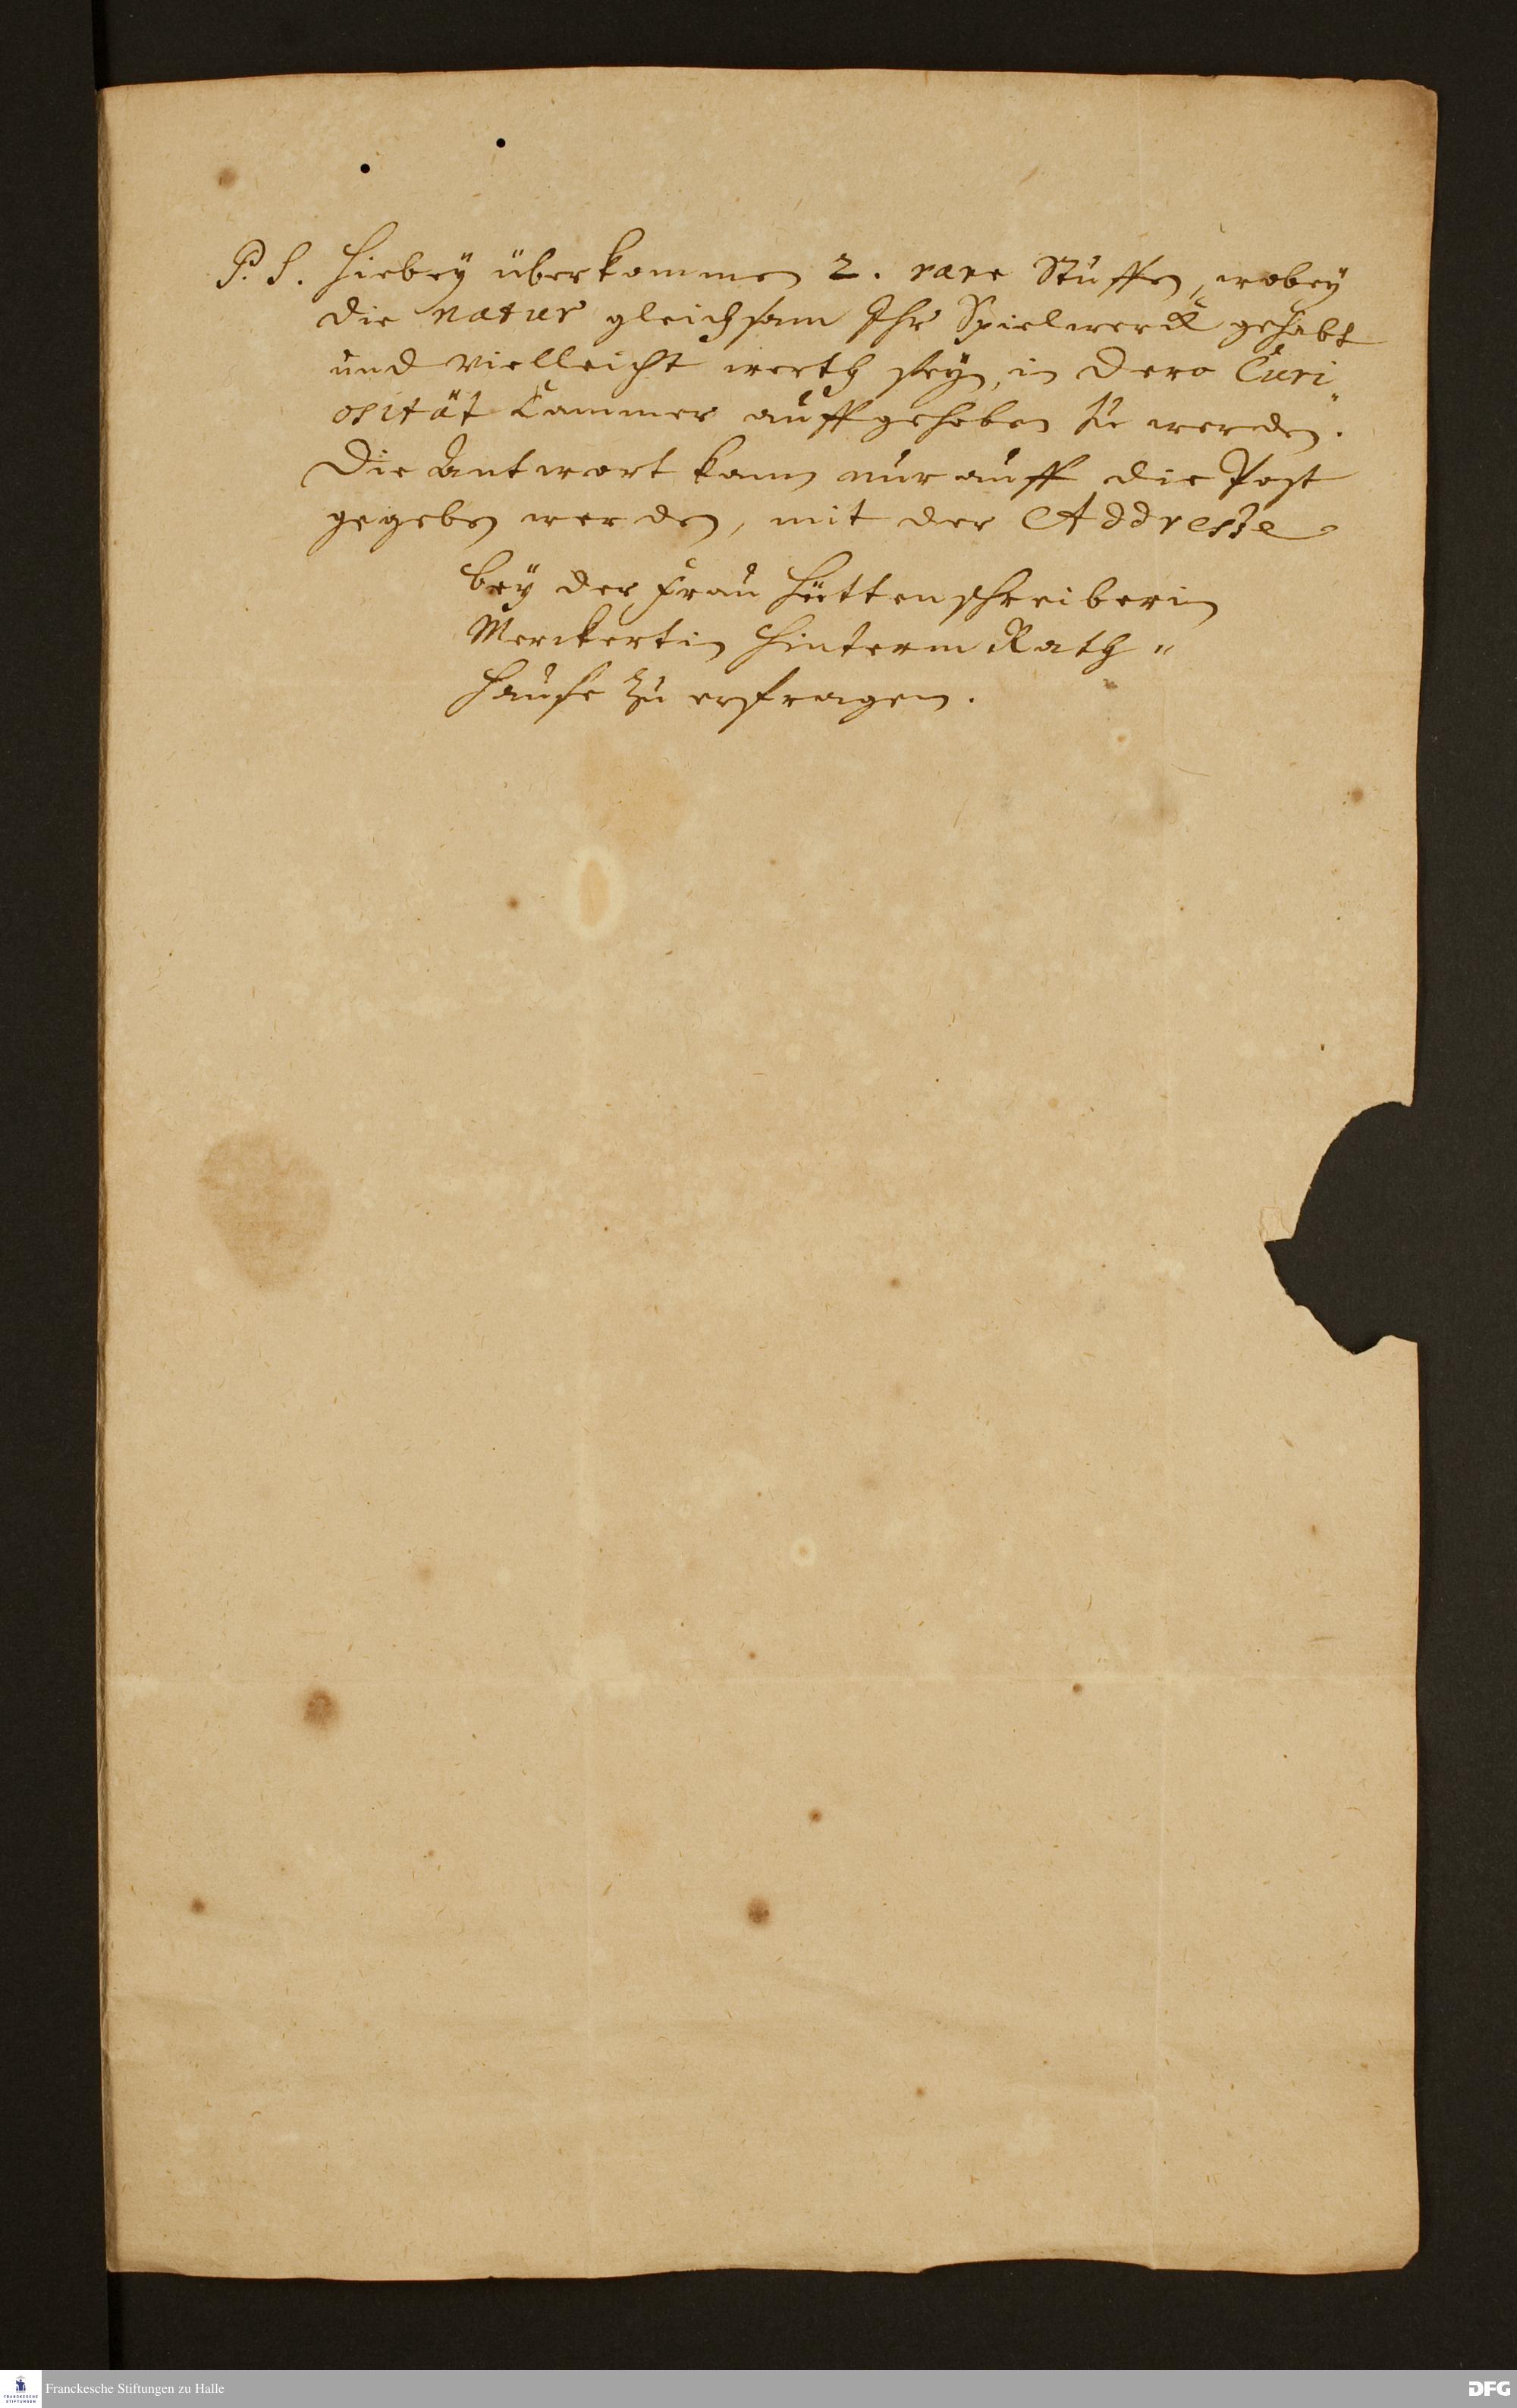 P. S. Hiebey überkommen 2. rare Stuffen, wobey
die natur gleichsam Ihr Spielwerck gehabt
und vielleicht werth seyn, in dero Curi"
osität Cammer auffgehoben zu werden.
Die Antwort kann nur auff die Post
gegeben werden, mit der Addresse
bey der Frau Hüttenschreiberin
Merckertin hinterm Rath"
hause zu erfragen.
FRANCKESCHE STIFTUNGEN
Franckesche Stiftungen zu Halle
DFG